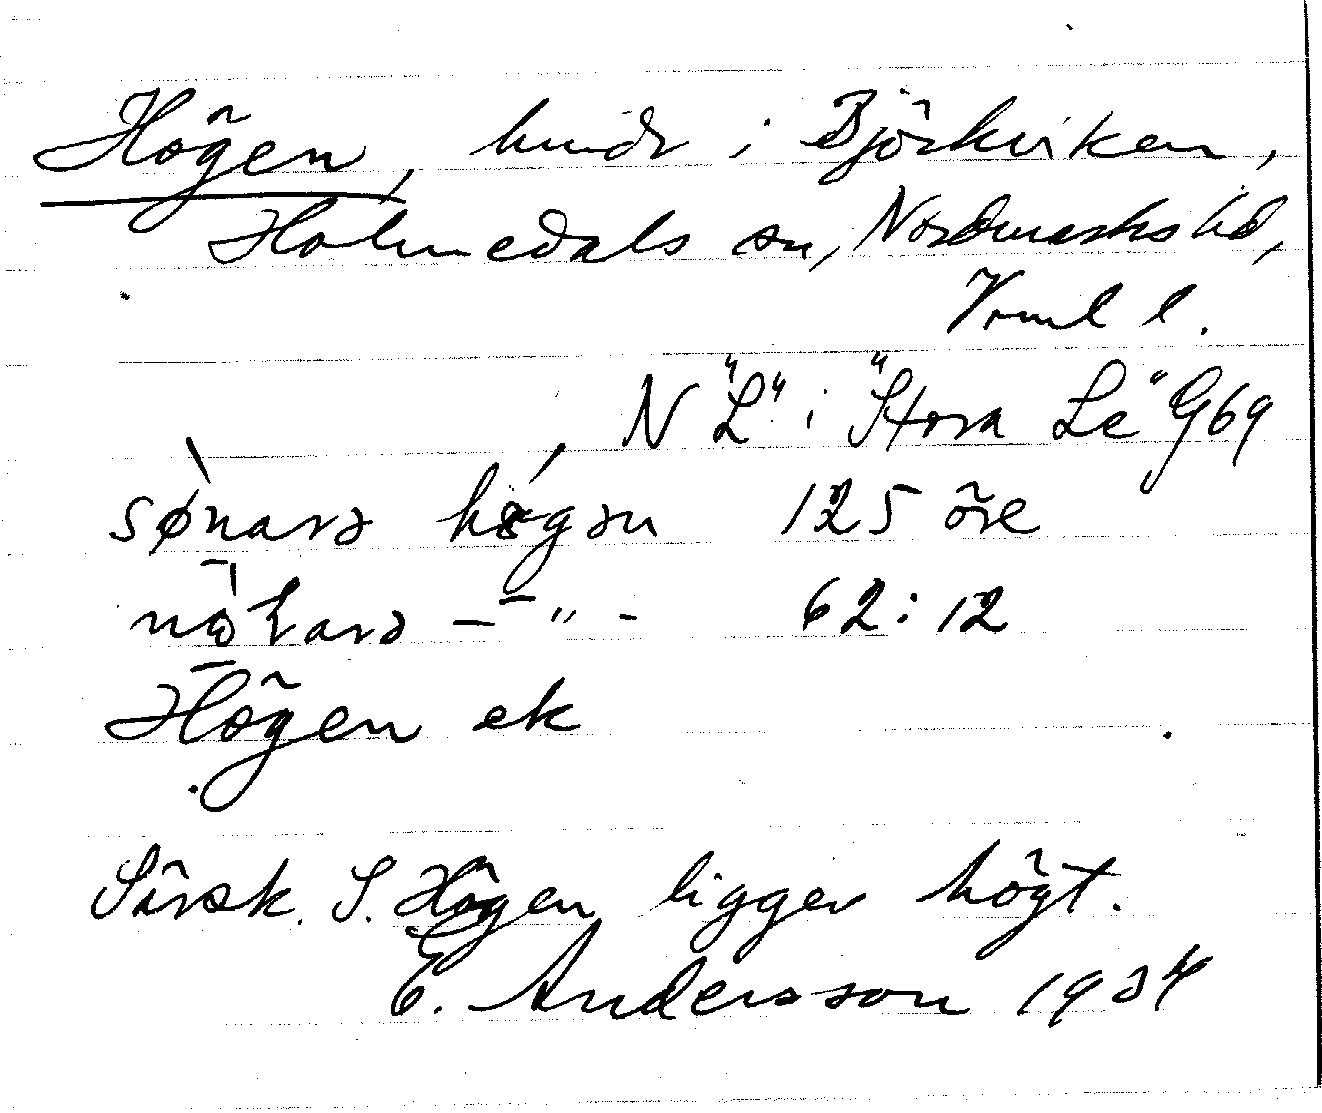 Högen, hmdr i Björkviken,
Holmedals sn, Nordmarks hd,
Vrml l.
N "L" i "Stora Le" G69
sønarə høgən 125 öre
nøḷarə – " – 62:12
Högen ek
Särsk. S. Högen ligger högt.
E. Andersson 1934